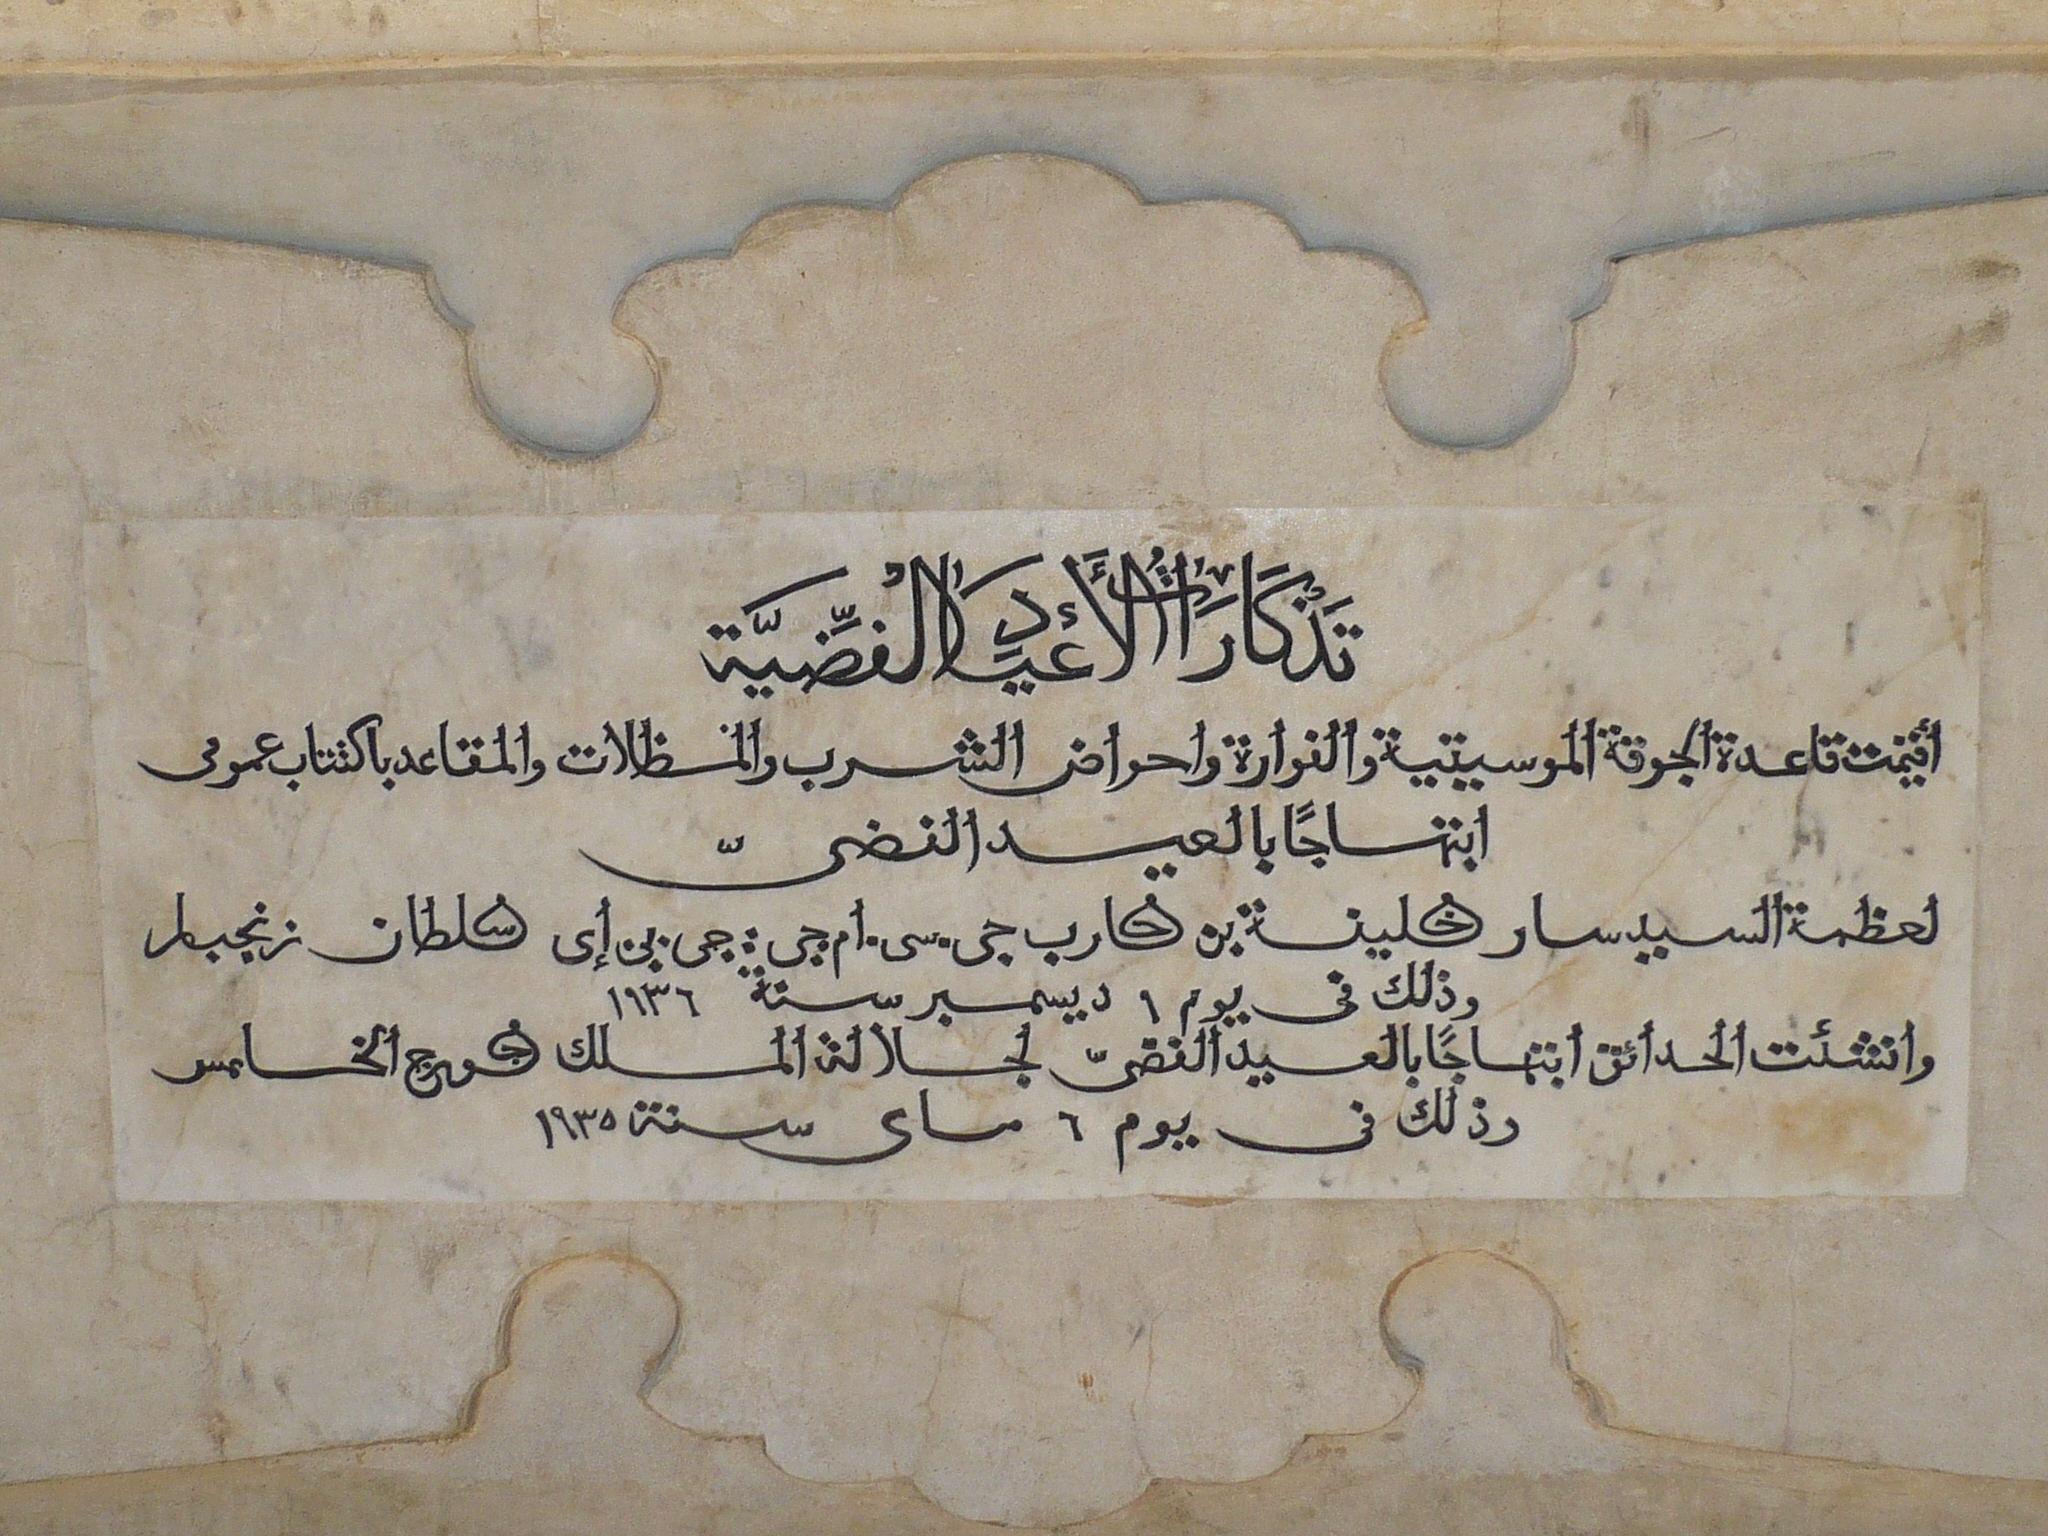 تَذْكَارَاتُ الْأَعْيَادِ الْفِضِّيَّة
أقيمت قاعدة الجوقة الموسيقية والفوارة واحواض الشرب والمظلات والمقاعد باكتتاب عمومى
ابتهاجًا بالعيد الفضىّ
لعظمة السيد سار خليفة بن حارب جى.سى.ام.جى: جى.بى.إى سلطان زنجبار
وذلك فى يوم ٩ ديسمبر سنة ١٩٣٦
وانشئت الحدائق ابتهاجًا بالعيد الفضىّ لجلالة الملك جورج الخامس
وذلك فى يوم ٦ ماى سنة ١٩٣٥